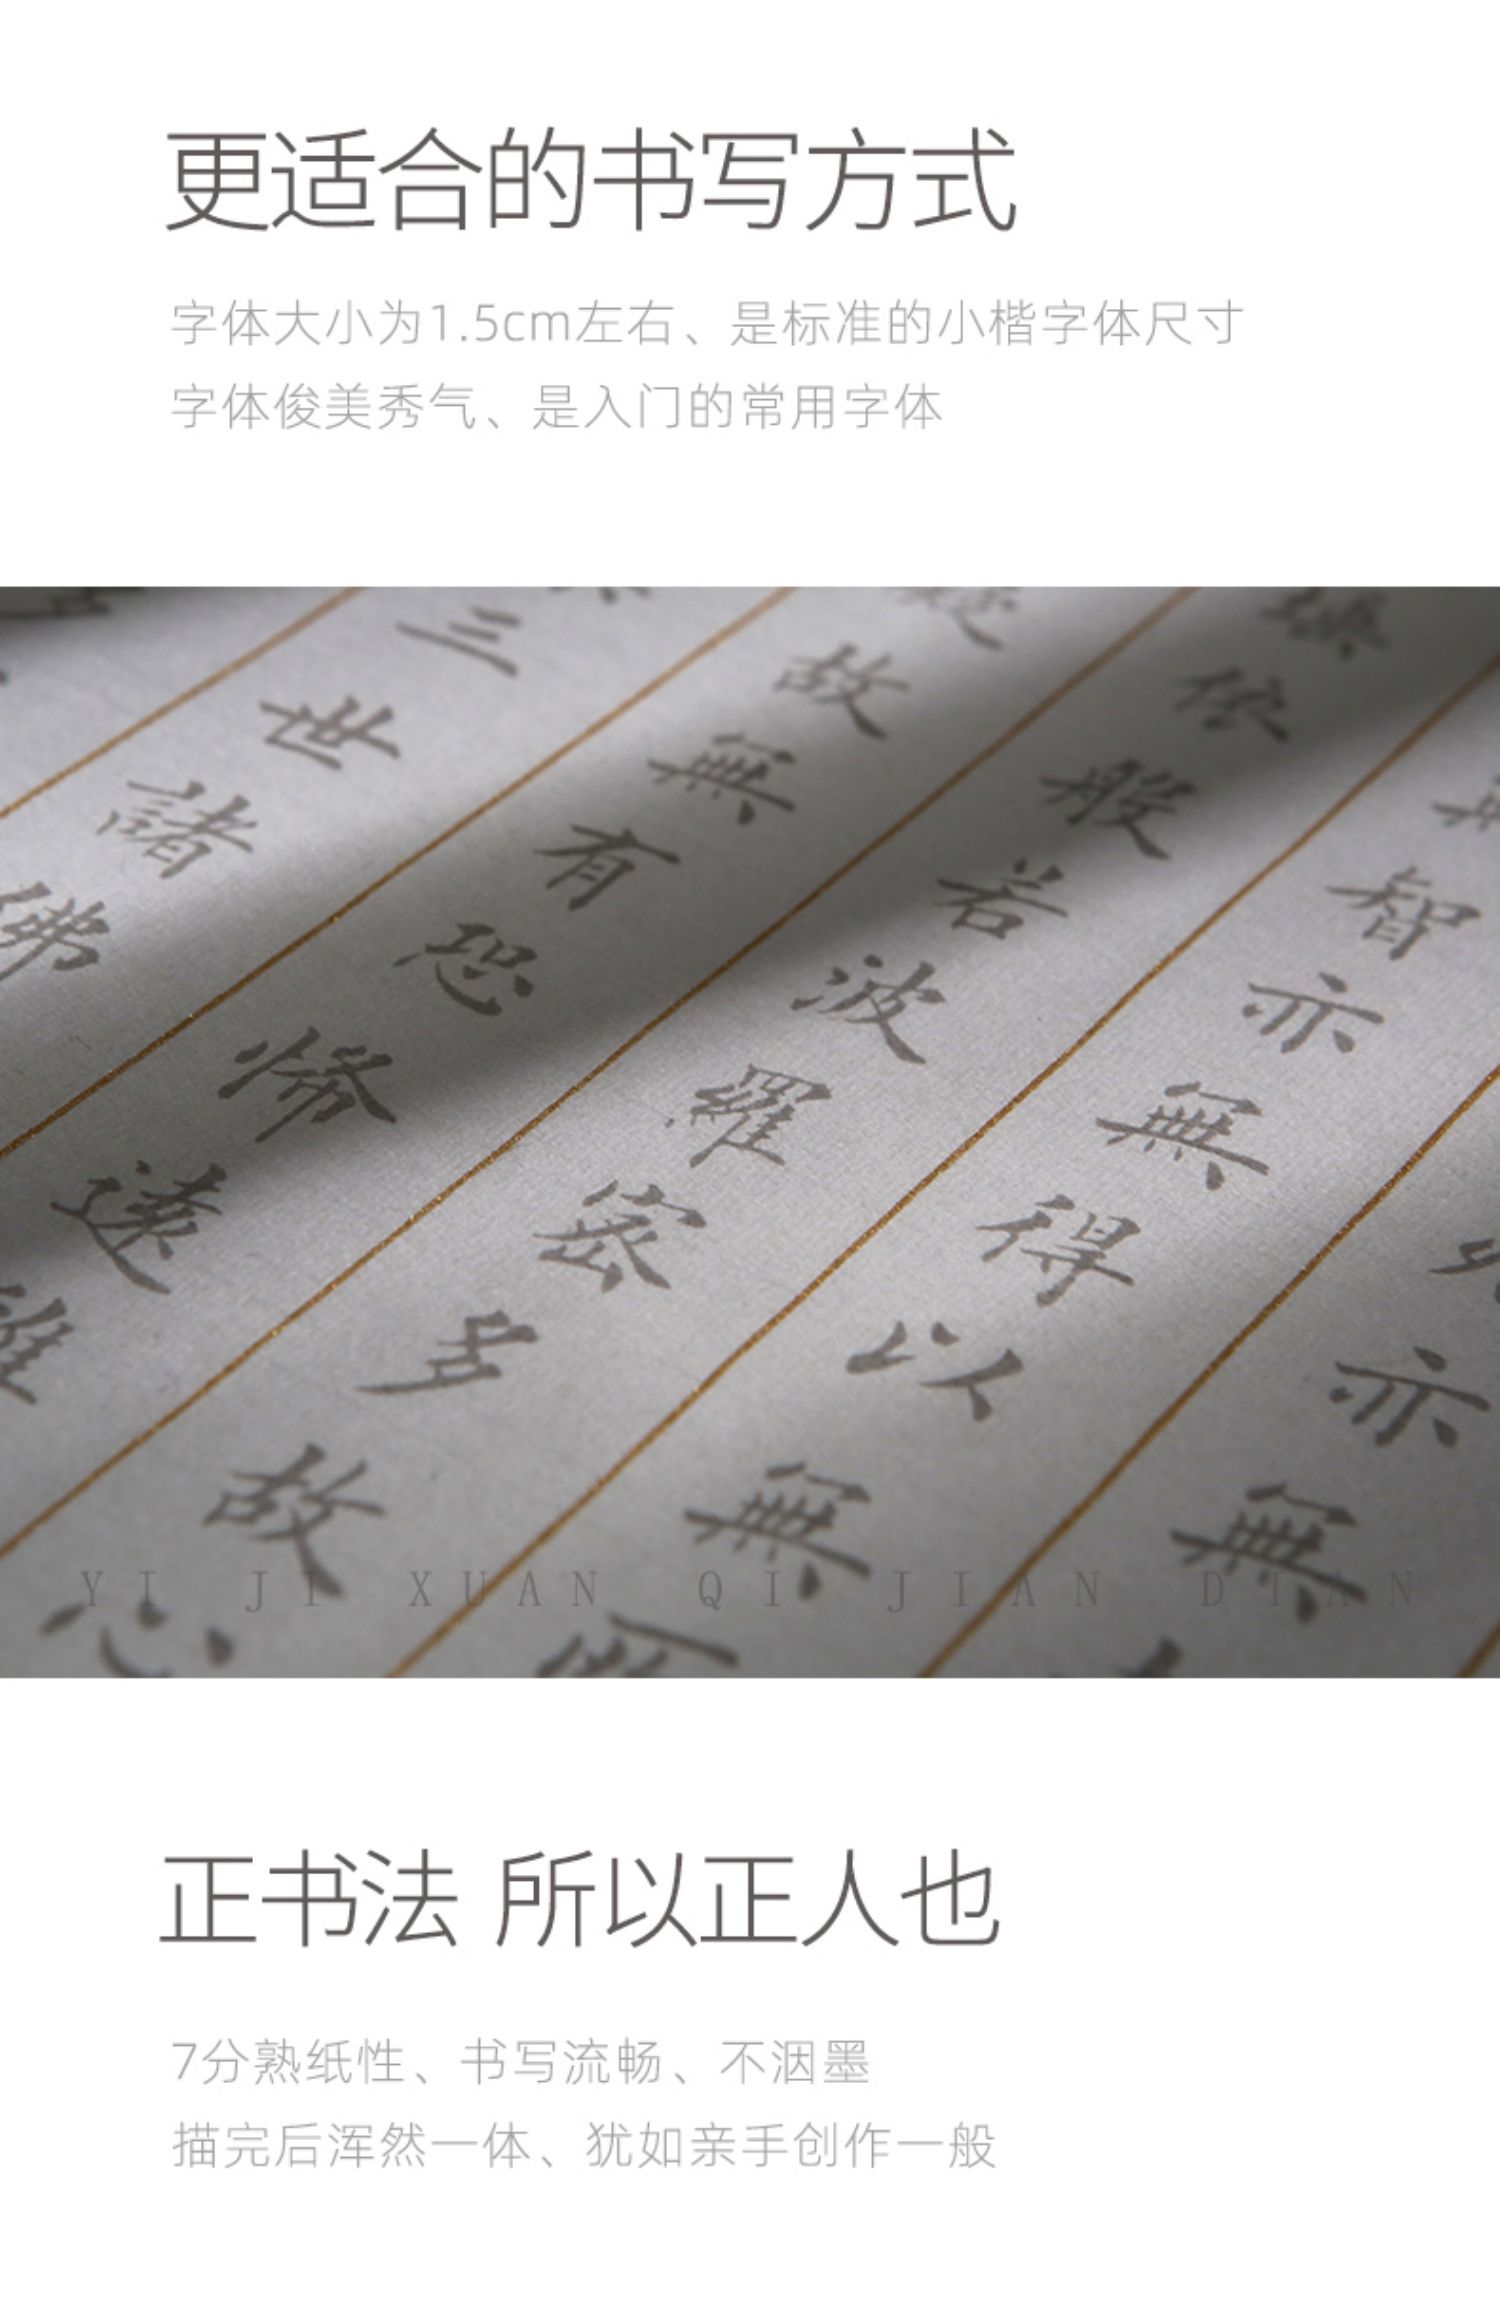 更适合的书写方式
字体大小为1.5cm左右、是标准的小楷字体尺寸
字体俊美秀气、是入门的常用字体
智亦無
亦無
依般若波羅密多故心
無得以無所
故無有恐怖遠離
三世諸佛
YI JI XUAN QI JIAN DIAN
正书法 所以正人也
7分熟纸性、书写流畅、不洇墨
描完后浑然一体、犹如亲手创作一般